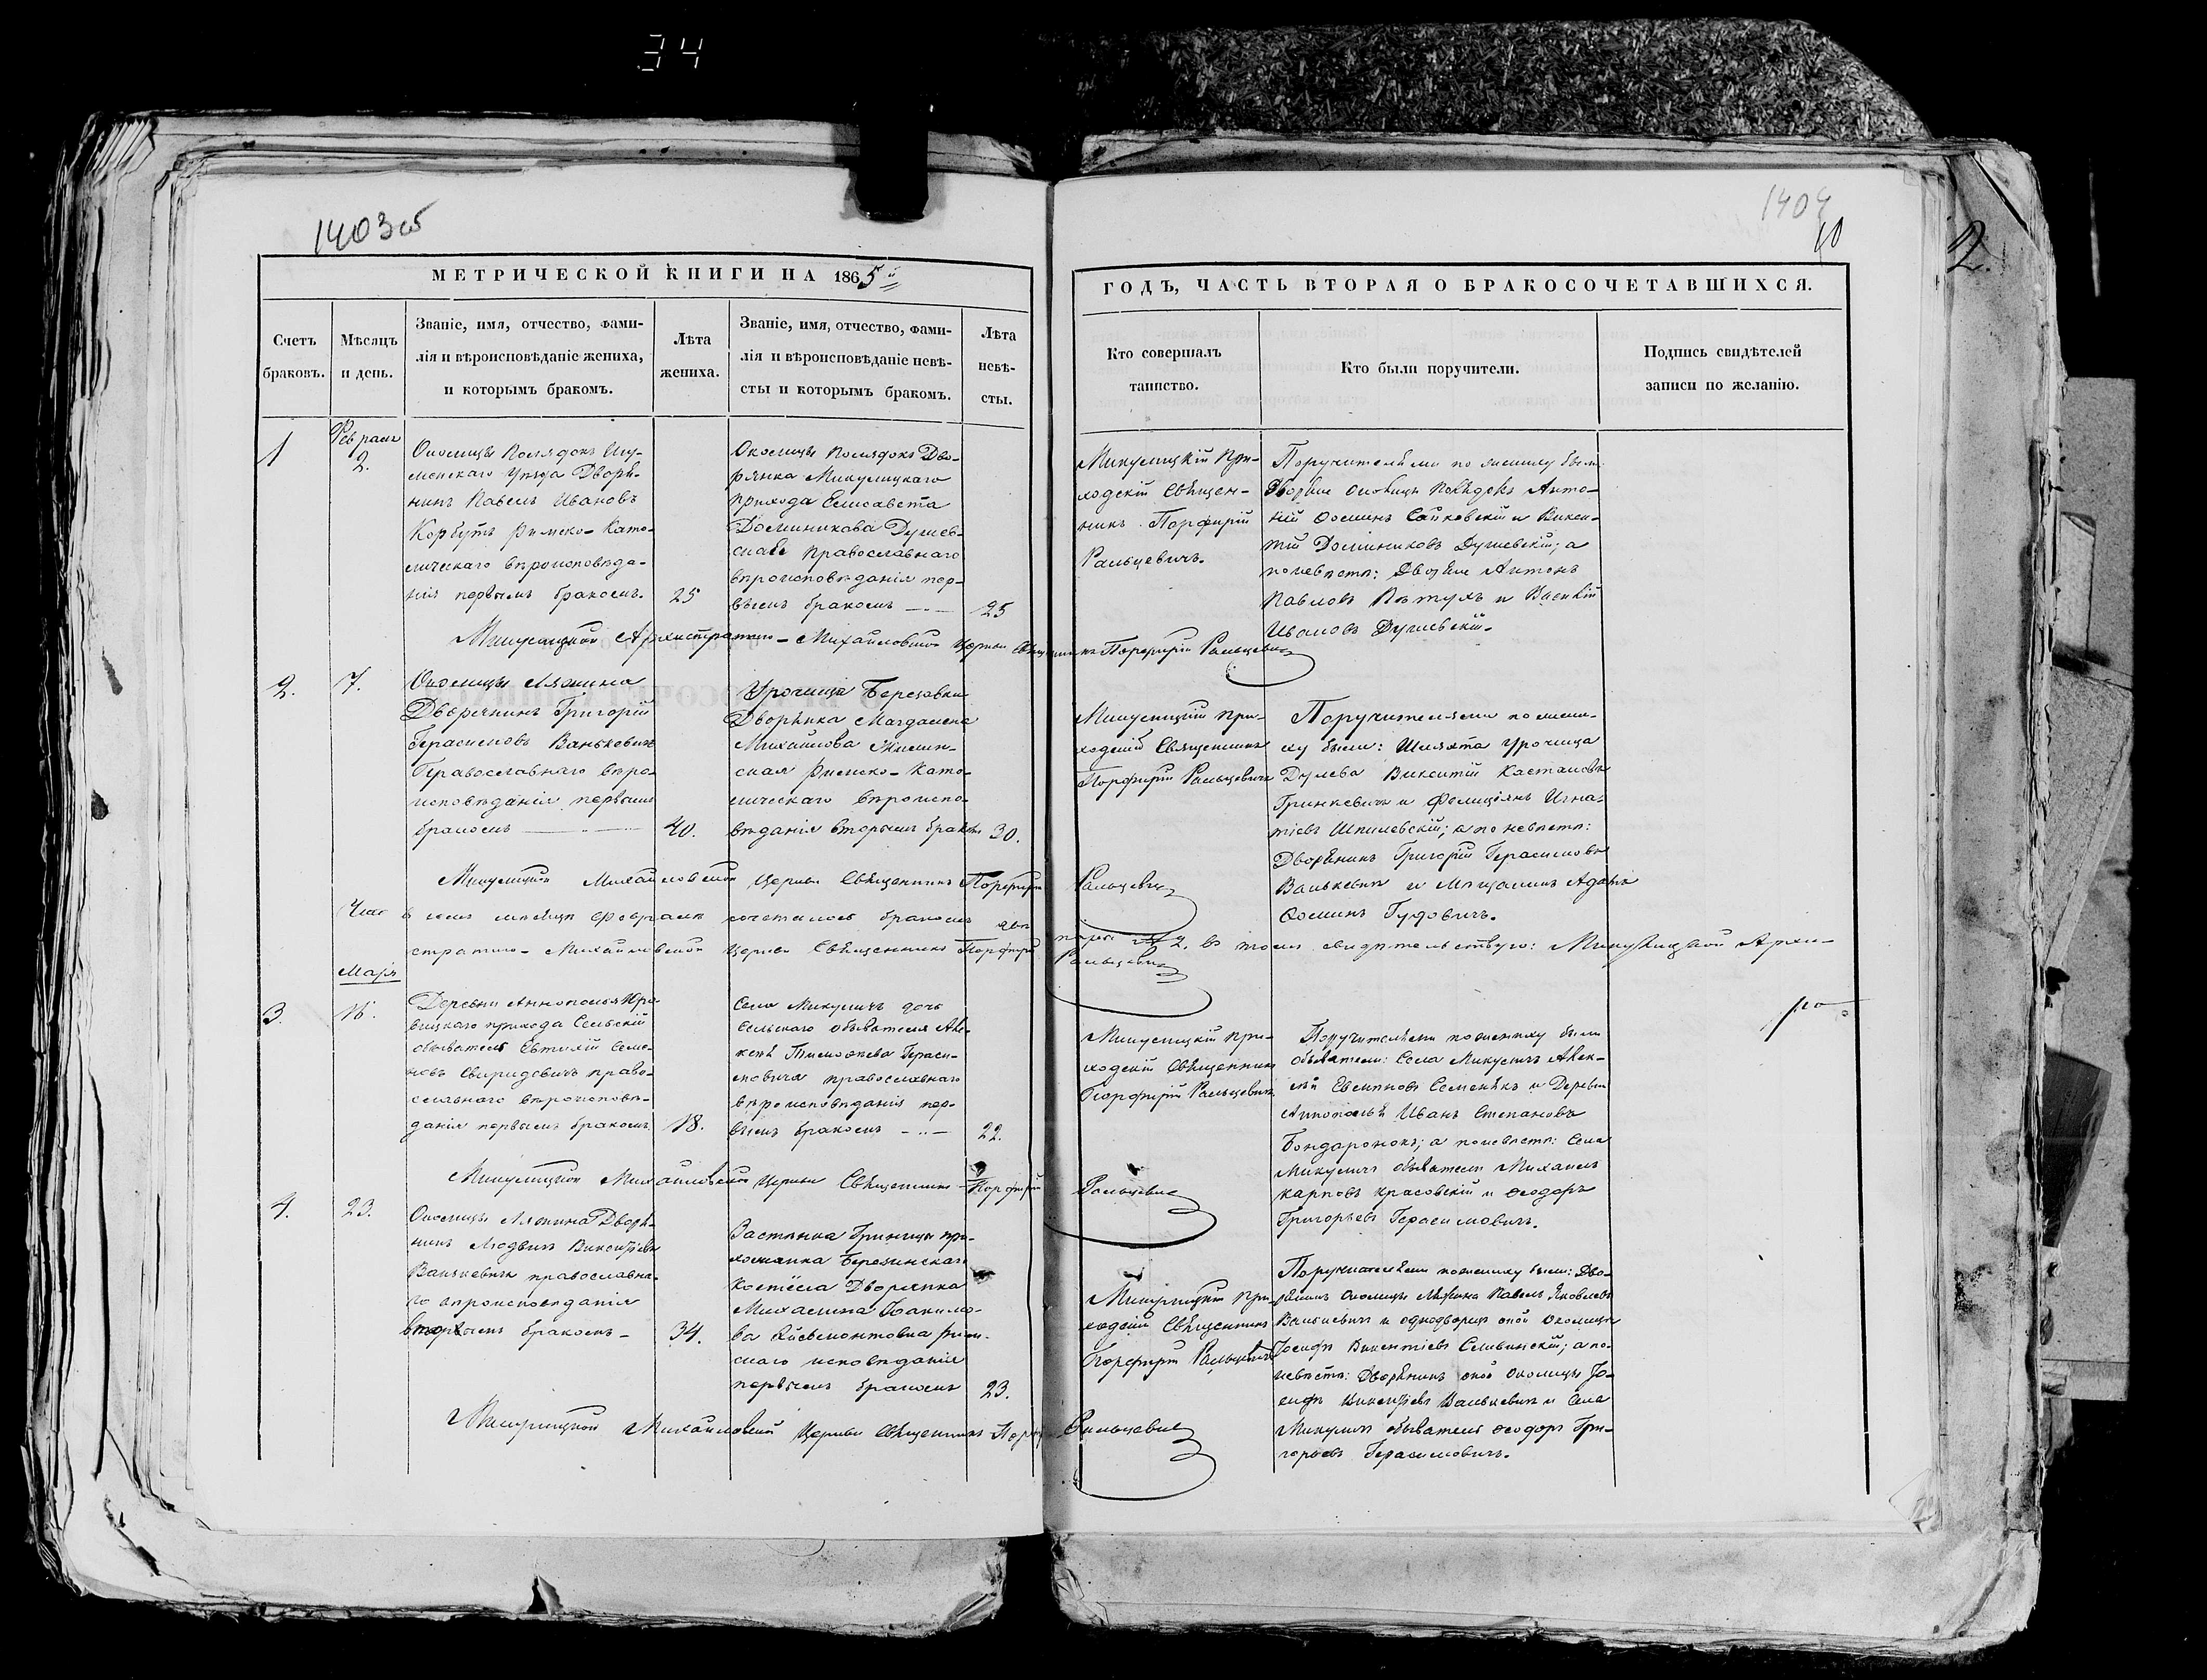 34
1403об
1404
10
2.
МЕТРИЧЕСКОЙ КНИГИ НА 1865й
ГОДЪ, ЧАСТЬ ВТОРАЯ О БРАКОСОЧЕТАВШИХСЯ.
Счетъ
браковъ.
Мѣсяцъ
и день.
Званіе, имя, отчество, фами-
лія и вѣроисповѣданіе жениха,
и которымъ бракомъ.
Лѣта
жениха.
Званіе, имя, отчество, фами-
лія и вѣроисповѣданіе невѣ-
сты и которымъ бракомъ.
Лѣта
невѣ-
сты.
Кто совершалъ
таинство.
Кто были поручители.
Подпись свидѣтелей
записи по желанію.
1
Февраля
2.
Околицы Иг-
уменскаго Уѣзда Дворя-
нинъ Павелъ Ивановъ
Корбутъ Римско-Като-
лическаго вѣроисповѣда-
нія первымъ бракомъ.
25
Околицы Дво-
рянка Микулицкаго
прихода Елисавета
Доминикова
православнаго
вѣроисповѣданія пер-
вымъ бракомъ
25
Микулицкій При-
ходскій Священ-
никъ Порфирій
Ральцевичъ.
Поручителями по жениху были
Дворяне околицы Анто-
ній Ѳоминъ и Викен-
тій Доминиковъ а
по невѣстѣ: Дворяне Антонъ
Павловъ Пѣтухъ и Василій
Ивановъ
Микулицкой Архистратиго-Михайловской Церкви Священникъ Порфирій Ральцевичъ
2.
7.
Околицы Ляжина
Дворянинъ Григорій
Герасимовъ Ванькевичъ
Православнаго вѣро-
исповѣданія первымъ
бракомъ
40.
Урочища Березовки
Дворянка Магдалена
Михайлова
ская Римско-Като-
лическаго вѣроиспо-
вѣданія вторымъ бракомъ
30.
Микулицкій При-
ходскій Священникъ
Порфирій Ральцевичъ
Поручителями по жени-
ху были: Шляхта урочища
Дулева Викентій Кастановъ
Гринкевичъ и Фелиціянъ Игна-
тіевъ Шпилевскій; а по невѣстѣ:
Дворянинъ Григорій Герасимовъ
Ванькевичъ и Мѣщанинъ Адамъ
Ѳоминъ Гудовичъ.
Микулицкой Михайловской Церкви Священникъ Порфирій Ральцевичъ
Что въ семъ мѣсяцѣ Февралѣ сочеталось бракомъ двѣ пары № 2. въ томъ свидѣтельствую: Микулицкой Архи-
стратиго-Михайловской Церкви Священникъ Порфирій Ральцевичъ
Маія
3.
16.
Деревни Аннополья Юре-
вицкаго прихода Сельскій
обыватель Евтихій Семе-
новъ Свиридовичъ право-
славнаго вѣроисповѣ-
данія первымъ бракомъ
18.
Села Микуличъ дочь
Сельскаго обывателя
Тимоѳеева Гераси-
мовича православнаго
вѣроисповѣданія пер-
вымъ бракомъ
22.
Микулицкій При-
ходскій Священникъ
Порфирій Ральцевичъ
Поручителями по жениху были
обыватели: Села Микуличъ Алек-
сѣй Семенякъ и Деревни
Аннополья Иванъ Степановъ
Бондаронокъ; а по невѣстѣ: Села
Микуличъ обыватели Михаилъ
Карповъ Красовскій и Ѳеодоръ
Григорьевъ Герасимовичъ.
Микулицкой Михайловской Церкви Священникъ Порфирій Ральцевичъ
4.
23.
Околицы Ляжина Дворя-
нинъ Людвигъ Викентіевъ
Ванькевичъ православна-
го вѣроисповѣданія
вторымъ бракомъ
34.
Застѣнка Гриницы при-
хожанка Березинскаго
Костёла Дворянка
Михалина Іоакимо-
ва Рим-
скаго исповѣданія
первымъ бракомъ
23.
Микулицкій При-
ходскій Священникъ
Порфирій Ральцевичъ
Поручителями по жениху были: Дво-
рянинъ околицы Ляжина Павелъ Яковлевъ
Ванькевичъ и однодворецъ оной околицы
Іосифъ Викентіевъ Сливинскій; а по-
невѣстѣ: Дворянинъ оной околицы Іо-
сифъ Викентіевъ Ванькевичъ и Села
Микуличъ обыватель Ѳеодоръ Гри-
горьевъ Герасимовичъ.
Микулицкой Михайловской Церкви Священникъ Ральцевичъ